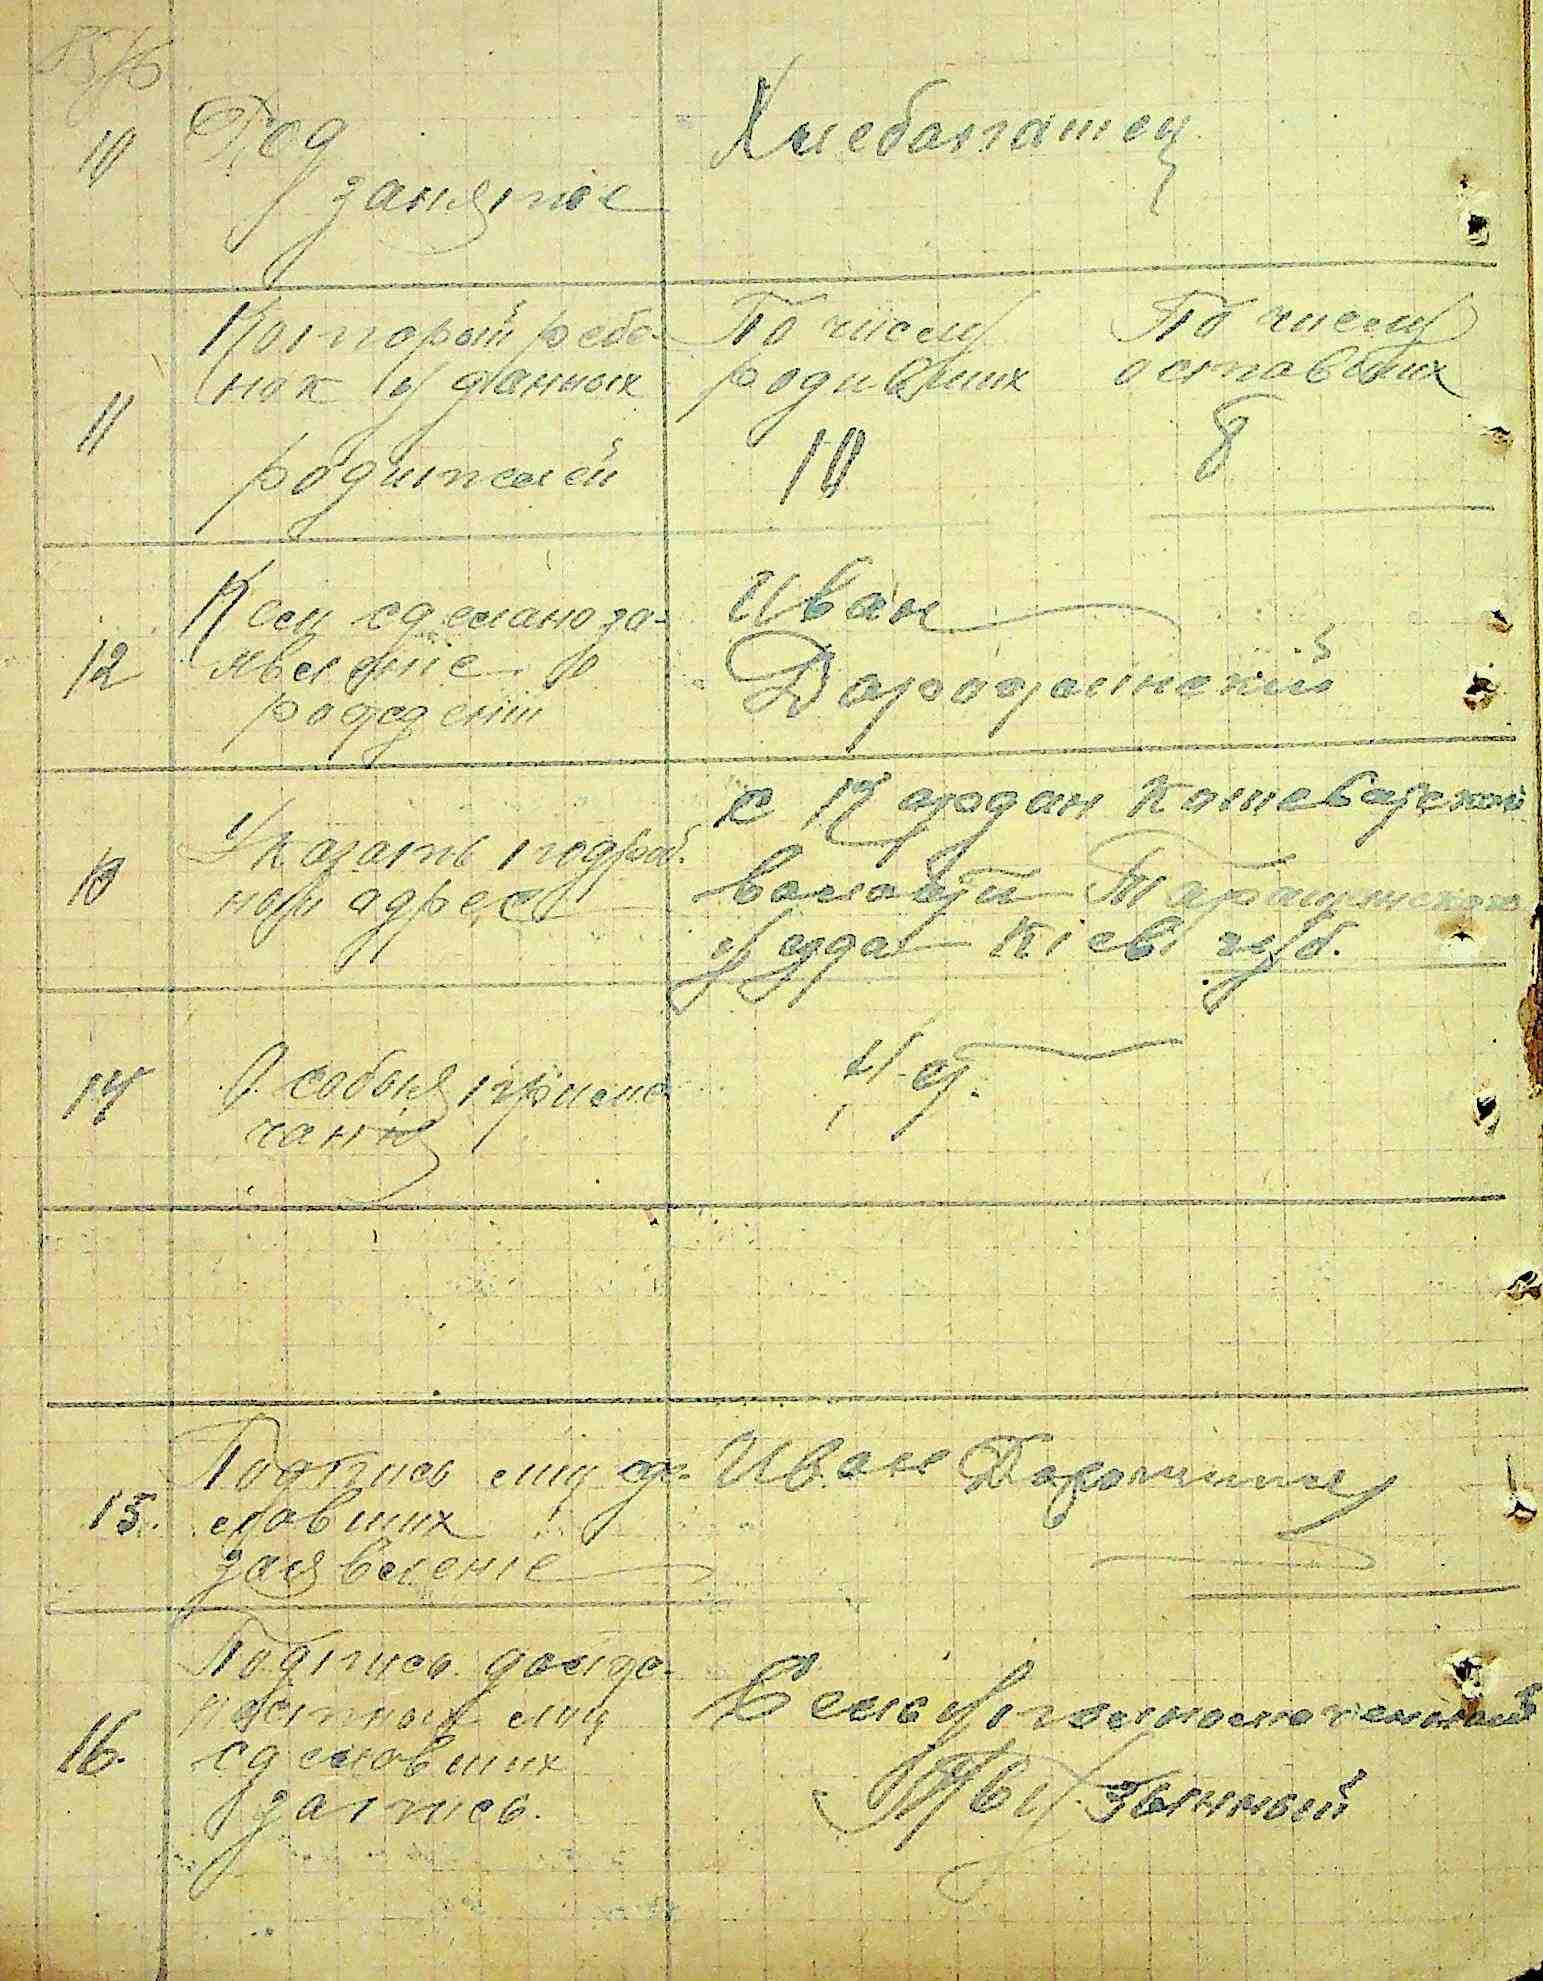 10 Род
занятие
Хлебопашец
11 Который ребе-
нок у данных
родителей
По числу
родивших
10
По числу
оставших
8
12 Кем сделано за-
явление о
рождении
Иван
13 Указать подроб.
ный адрес
с Кардан
волости Таращанского
уезда Кіев. губ.
14 Особыя приме-
чания
15. Подпись лиц сде-
лавших
заявленіе
Иван
16. Подпись должно-
стных лиц
сделавших
запись.
Сельуполномоченный